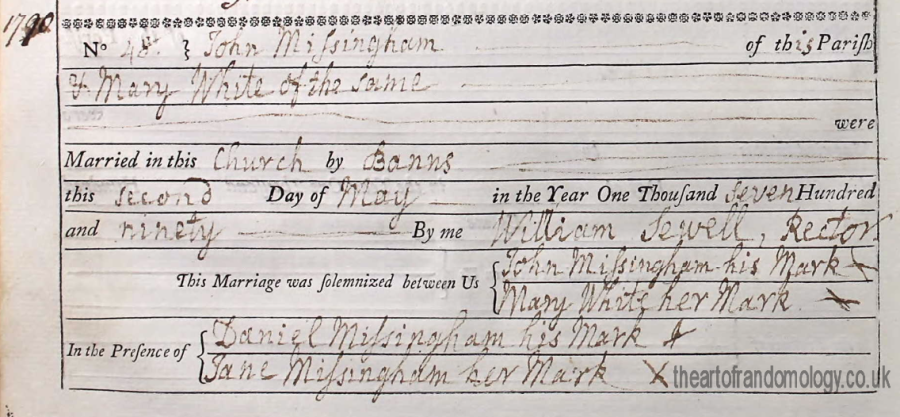 1790.
No 48. } John Miſsingham of this Pariſh
& Mary White of the same
were
Married in this Church by Banns
this second Day of May in the Year One Thouſand seven Hundred
and ninety By me William Sewell, Rector
This Marriage was ſolemnized between Us { John Miſsingham his Mark X
Mary White her Mark X
In the Preſence of { Daniel Miſsingham his Mark X
Jane Miſsingham her Mark X
theartofrandomology.co.uk